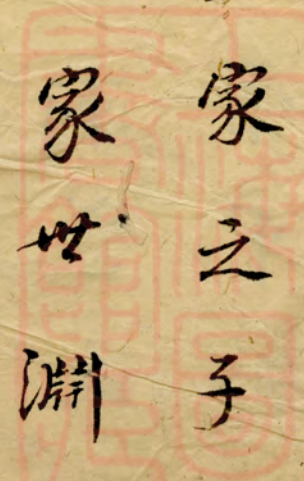 家之子
家世淵